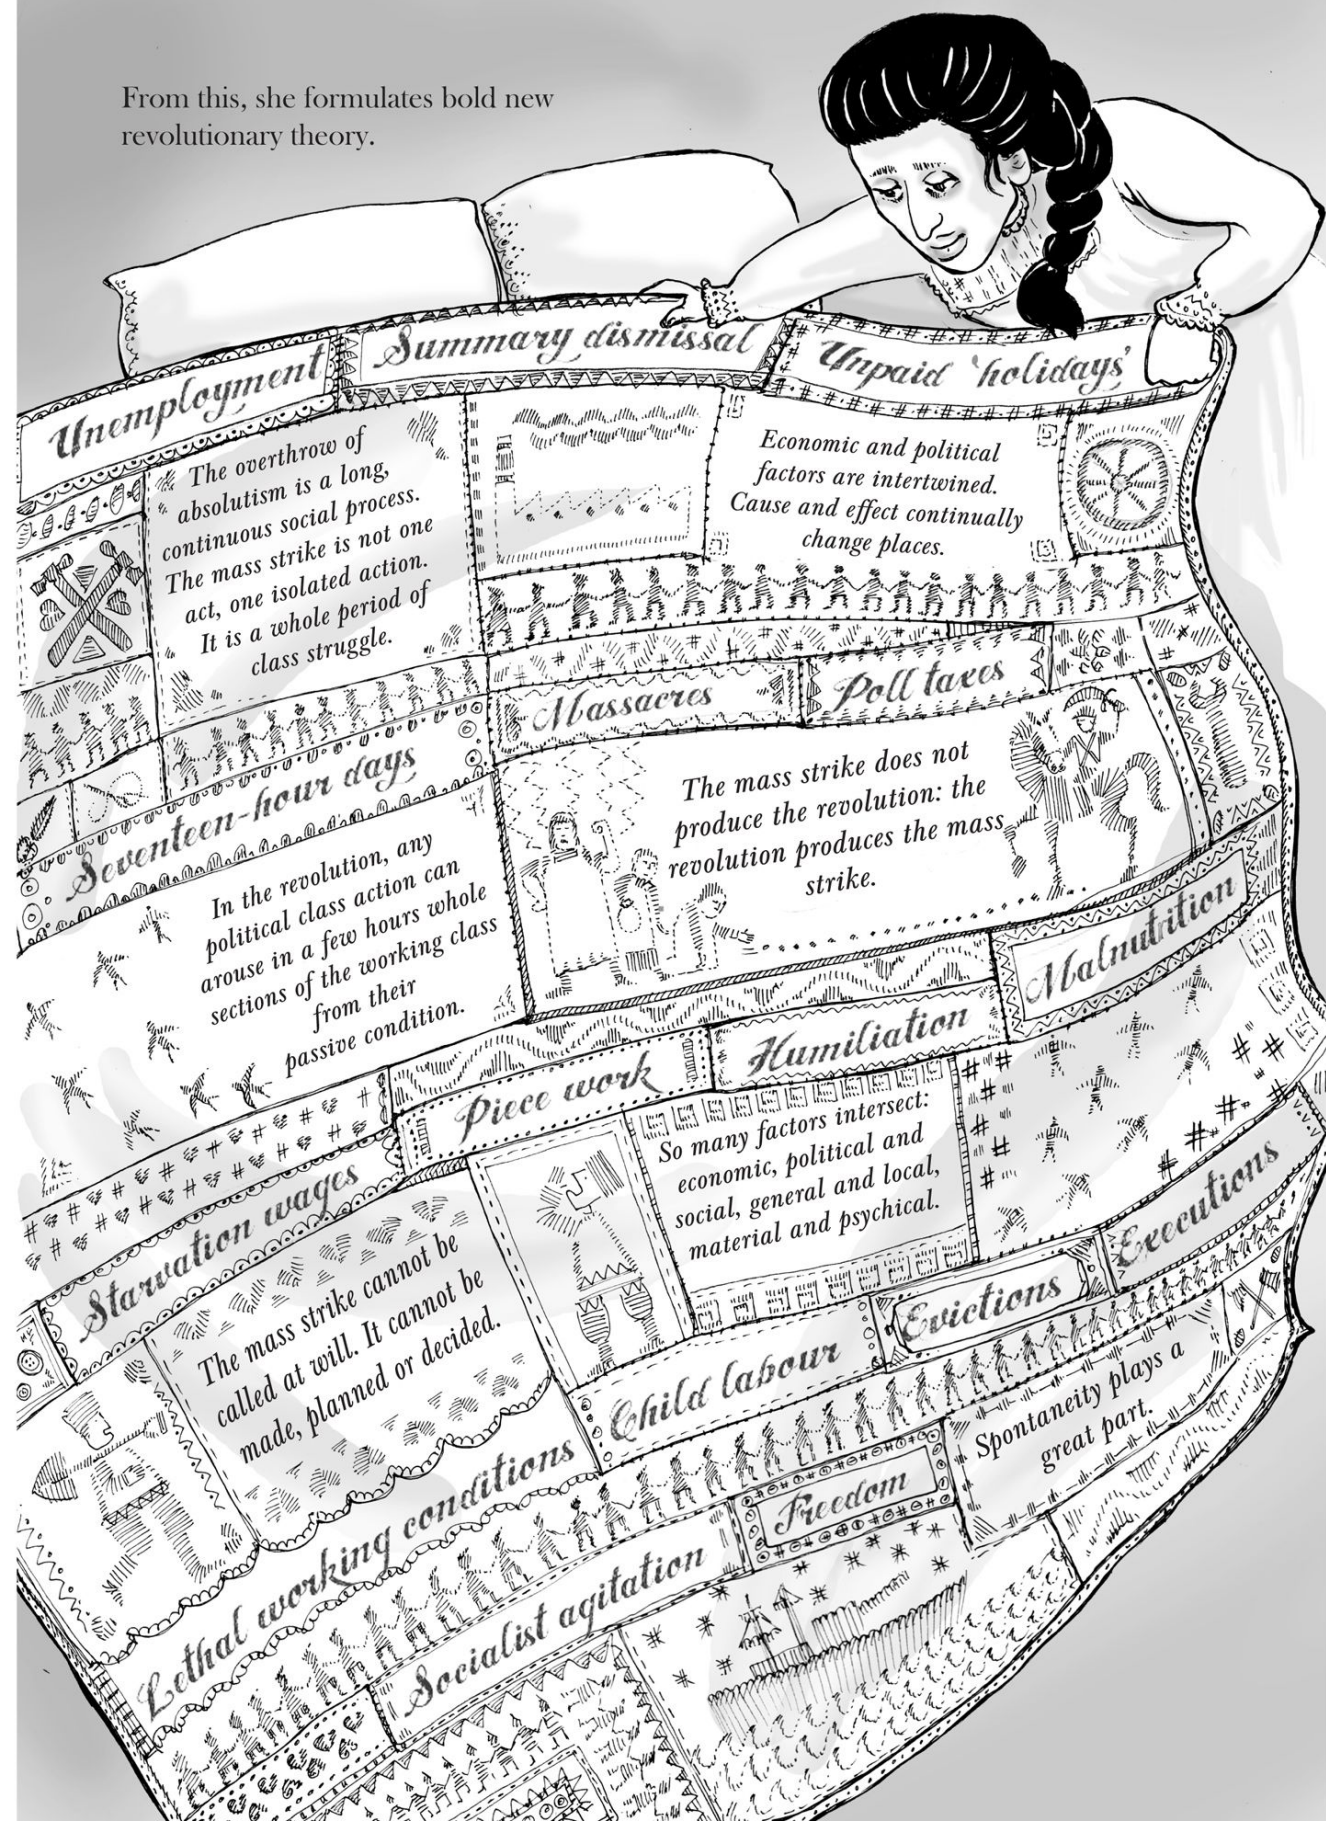 From this, she formulates bold new
revolutionary theory.
Unemployment
Summary dismissal
Unpaid 'holidays'
The overthrow of
absolutism is a long,
continuous social process.
The mass strike is not one
act, one isolated action.
It is a whole period of
class struggle.
Economic and political
factors are intertwined.
Cause and effect continually
change places.
Massacres
Poll taxes
Seventeen-hour days
The mass strike does not
produce the revolution: the
revolution produces the mass
strike.
In the revolution, any
political class action can
arouse in a few hours whole
sections of the working class
from their
passive condition.
Malnutrition
Piece work
Humiliation
So many factors intersect:
economic, political and
social, general and local,
material and psychical.
Starvation wages
Executions
The mass strike cannot be
called at will. It cannot be
made, planned or decided.
Evictions
Child labour
Spontaneity plays a
great part.
Lethal working conditions
Freedom
Socialist agitation